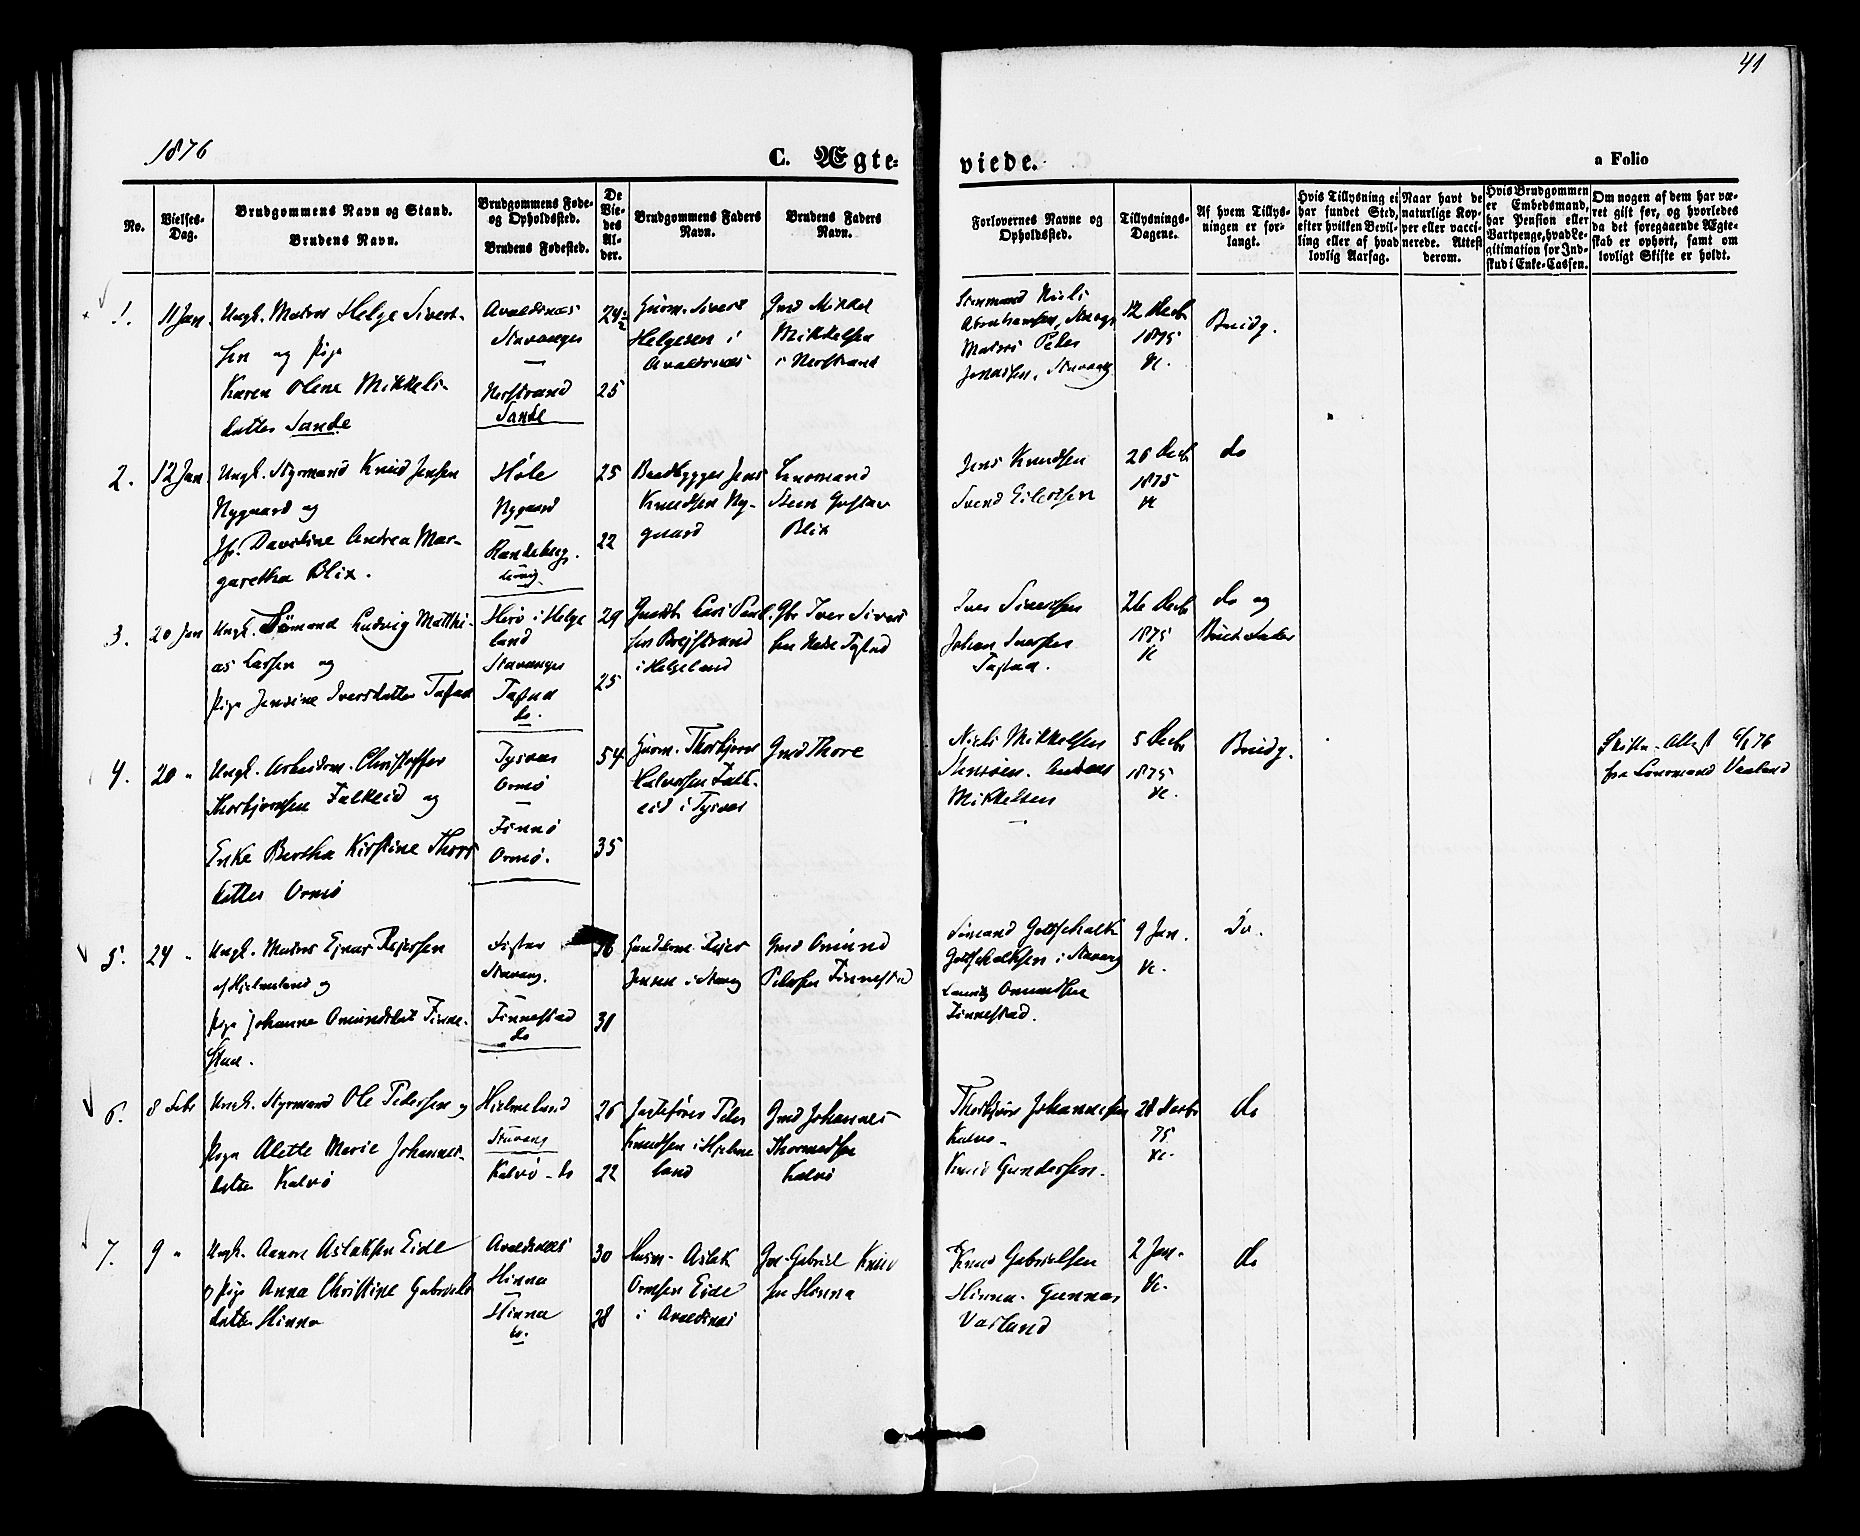 41
1876
C. Ægte-
viede.
a Folio
No.
Vielses-
Dag.
Brudgommens Navn og Stand.
Brudens Navn.
Brudgommens Føde-
og Opholdssted.
Brudens Fødested.
De
Vie-
des
Al-
der.
Brudgommens Faders
Navn.
Brudens Faders
Navn.
Forlovernes Navne og
Opholdssted.
Tillysnings-
Dagene.
Af hvem Tillys-
ningen er for-
langt.
Hvis Tillysning ei
har fundet Sted,
efter hvilken Bevil-
ling eller af hvad
lovlig Aarsag.
Naar havt de
naturlige Kop-
per eller vacci-
nerede. Attest
derom.
Hvis Brudgommen
er Embedsmand,
har Pension eller
Vartpenge, hvad Le-
gitimation for Ind-
skud i Enke-Cassen.
Om nogen af dem har væ-
ret gift før, og hvorledes
da det foregaaende Ægte-
skab er ophørt, samt om
lovligt Skifte er holdt.
1.
11 Jan.
Ungk. Matros Helge Sivert-
sen og Pige
Karen Olene Mikkels-
datter Sande
Avaldsnæs
Stavanger
Nerstrand
Sande
24½
25
Huusm. Sivert
Helgesen i
Avaldsnæs
Gmd Mikkel
Mikkelsen
i Nerstrand
Abrahamsen, Stavgr
Matros Peder
12 Decb
1875
Brudg.
2.
12 Jan
Ungk. Styrmand Knud Jensen
Nygaard og
Jfr. Davidine Andrea Mar-
garetha Blix.
Høle
Nygaard
Randeberg.
25
22
Baadbygger Jens
Knudsen Ny-
gaard
Lensmand
Steen Gustav
Blix
Jens Knudsen
Svend Eilertsen
26 Decb
1875
do
3.
20 Jan
Ungk. Sømand Ludvig Matthi-
as Larsen og
Pige Jensine Iversdatter Tastad
Herø i Helge
land
Stavanger
Tastad
do.
29
25
i Helgeland
Gbr Iver Sivert
Iver Sivertsen
Johan Iversen
Tastad.
26 Decb
1875
do og
4.
20 "
Ungk. Arbeidsm. Christoffer
Thorbjørnsen Falkeid og
Enke Bertha Kirstine Thors
datter Ormø
Tysvær
Ormø
Finnø
Ormø.
54
35
Huusm. Thorbjørn
Halvorsen Falk-
eid i Tysvær
Gmd Thore
Niels Mikkelsen
Mikkelsen
5 Decb
1875
Brudg.
Skifte-Attest 6/1 76
fra Lensmand Vaaland
5.
24 "
Ungk. Matros Ejnar Rejersen
af Hjelmeland og
Pige Johanna Omundsdat Finne-
stad.
Fister
Stavang.
Finnestad
do
36
31
Jensen i Stavg
Gmd Omund
Pedersen Finnestad
Sømand Gottschalk
Gottschalksen i Stavang
Omundsen
Finnestad.
9 Jan.
do.
6.
8 Febr
Ungk. Styrmand Ole Pedersen og
Pige Alette Marie Johannes-
datter Kalvø
Hjelmeland
Stavang
Kalvø - do
26
22
Jagtefører Peder
Knudsen i Hjelme
land
Gmd Johannes
Thormodsen
Kalvø
Thorbjørn Johannesen
Kalvø-
Knud Gundersen.
28 Novbr
75
do
7.
9 "
Ungk. Aanen Aslaksen Eide
og Pige Anna Christine Gabriels
datter Hinna
Avaldsnæs
Hinna
Hinna
do.
30
28
Husm. Aslak
Ormsen Eide
i Avaldsnæs
Gm. Gabriel Knud
sen Hinna
Knud Gabrielsen
Hinna. Gunnar
Vasland
2 Jan.
do